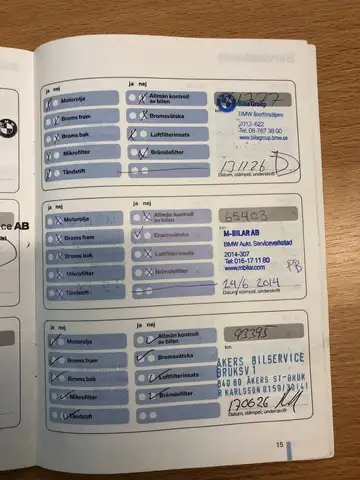 ja nej
Motorolja
Broms fram
Broms bak
Mikrofilter
Tändstift
ja nej
Allmän kontroll
av bilen
Bromsvätska
Luftfilterinsats
Bränslefilter
Bila Group
BMW återförsäljare
2013-622
Tel. 08-767 38 00
www.bilagroup.bmw.se
131126
Datum, stämpel, underskrift
ja nej
Motorolja
Broms fram
Broms bak
Mikrofilter
Tändstift
ja nej
Allmän kontroll
av bilen
Bromsvätska
Luftfilterinsats
Bränslefilter
65403
km
M-BILAR AB
BMW Aukt. Serviceverkstad
2014-307
Tel 016-17 11 80
www.mbilar.com
24/6 2014
Datum, stämpel, underskrift
ce AB
ja nej
Motorolja
Broms fram
Broms bak
Mikrofilter
Tändstift
ja nej
Allmän kontroll
av bilen
Bromsvätska
Luftfilterinsats
Bränslefilter
93395
km
ÅKERS BILSERVICE
BRUKSV 1
640 60 ÅKERS ST-BRUK
R KARLSSON 0159/30141
170626
Datum, stämpel, underskrift
15